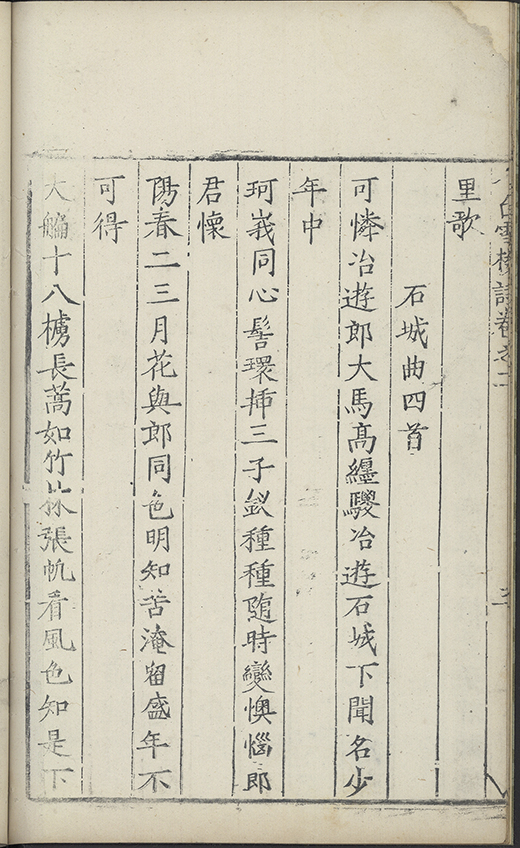 白雲樓詩卷之二
里歌
石城曲四首
可憐冶遊郎大馬高纏騣冶遊石城下聞名少
年中
珂峩同心髻環揷三子釵種種隨時變懊惱郎
君懷
陽春二三月花與郎同色明知苦淹留盛年不
可得
大艑十八櫎長蒿如竹林張帆看風色知是下